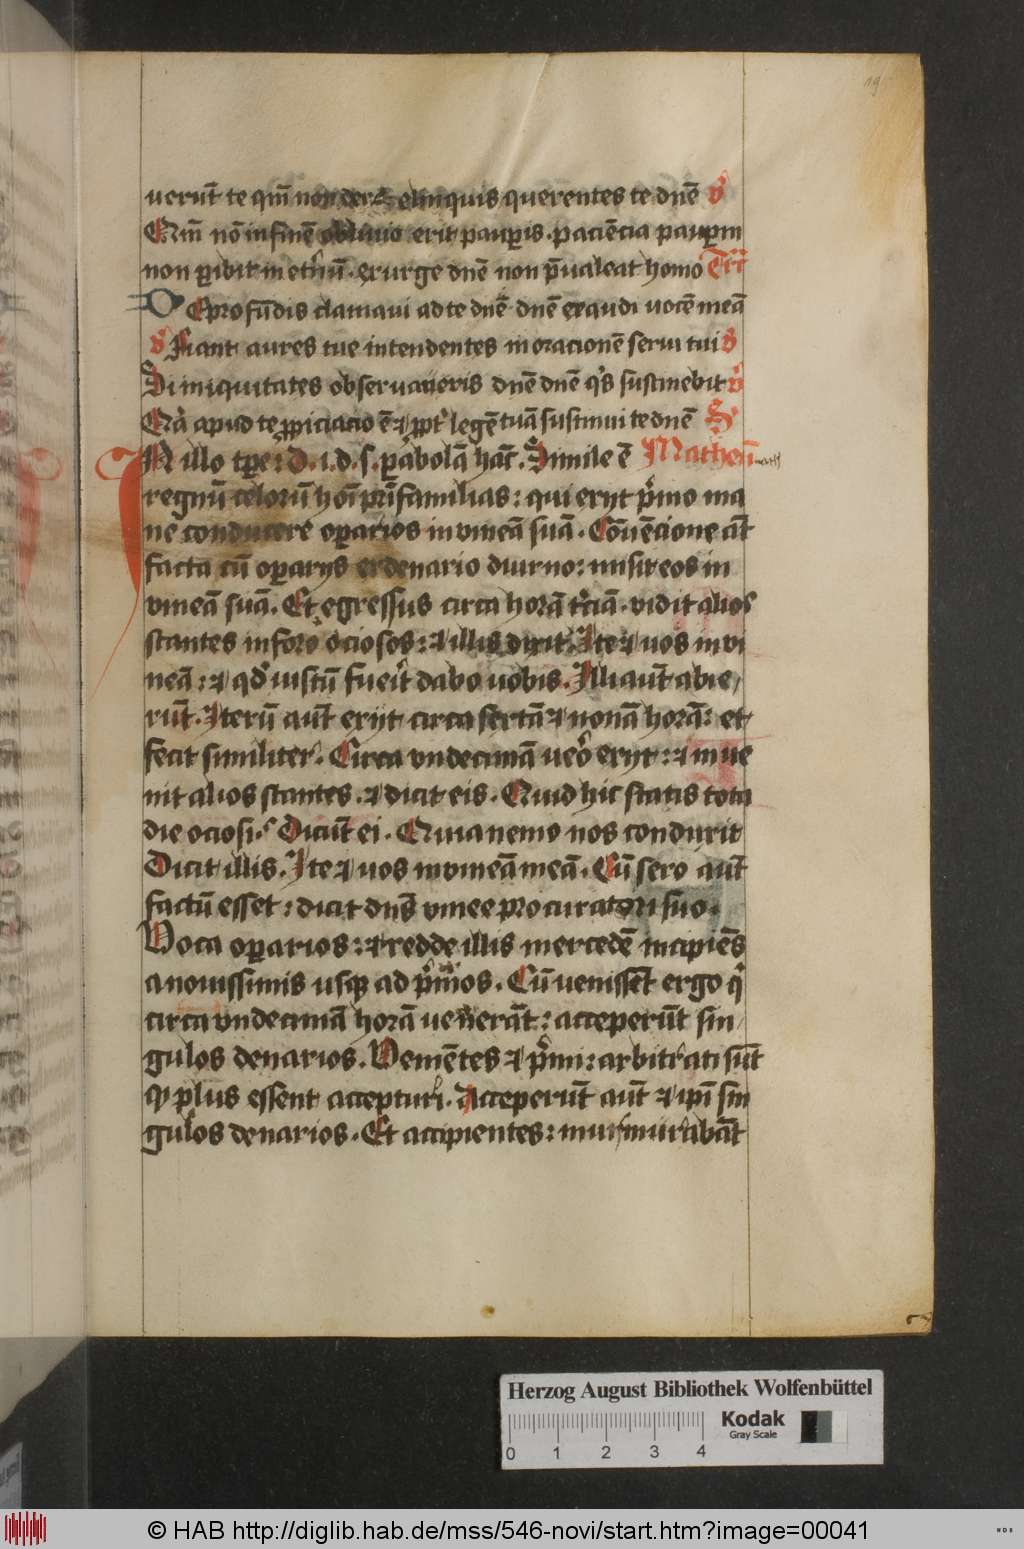 19
uerūt te qm̄ non derelinquis querentes te dn̄e v̾
Qm̄ nō in finē obliuio erit paup̲is . paciēcia paup̲m
non p̲ibit in et̾nū . exurge dn̄e non p̄ualeat homo Tr̄c
De profūdis clamaui ad te dn̄e dn̄e exaudi uocē meā
v̾ Fiant aures tue intendentes in oracionē serui tui v̾
Si iniquitates obseruaueris dn̄e dn̄e q̾s sustinebit v̾
Q̄a apud te ꝓpiciacio ē ⁊ ꝓpt̾ legē tuā sustinui te dn̄e S̾
IN illo tp̄re : d . i . d . s . p̲abolā hāc . Simile ē Matheū math
regnū celorū hoī pr̄ifamilias : qui exijt p̾mo ma
ne conducere op̲arios in vineā suā . Cōuēcione aūt
facta cū op̲arijs ex denario diurno : misit eos in
vineā suā . Et egressus circa horā t̾ciā . vidit alios
stantes in foro ociosos : ⁊ illis dixit . Ite ⁊ uos in vi
neā : ⁊ qd̾ iustū fuerīt dabo uobis . Illi aūt abie/
rūt . Iterū aūt exijt circa sextā ⁊ nonā horā : et
fecit similiter . Circa vndecimā ueō exijt : ⁊ inue
nit alios stantes . ⁊ dicit eis . Quid hic statis tota
die ociosi . Dicūt ei . Quia nemo nos conduxit
Dicit illis . Ite ⁊ uos in vineā meā . Cū sero aūt
factū esset : dicit dn̄s vinee procuratori suo .
Voca op̲arios : ⁊ redde illis mercedē incipiēs
a nouissimis usq̨ ad p̾mos . Cū uenissēt ergo q̾
circa vndecimā horā uenerāt : acceperūt sin/
gulos denarios . Veniētes ⁊ p̾mi : arbit̾ati sūt
ꝙ plus essent accepturi . Acceperūt aūt ⁊ ipī sin
gulos denarios . Et accipientes : murmurabāt
Herzog August Bibliothek Wolfenbüttel
0 1 2 3 4
Kodak
Gray Scale
© HAB http://diglib.hab.de/mss/546-novi/start.htm?image=00041